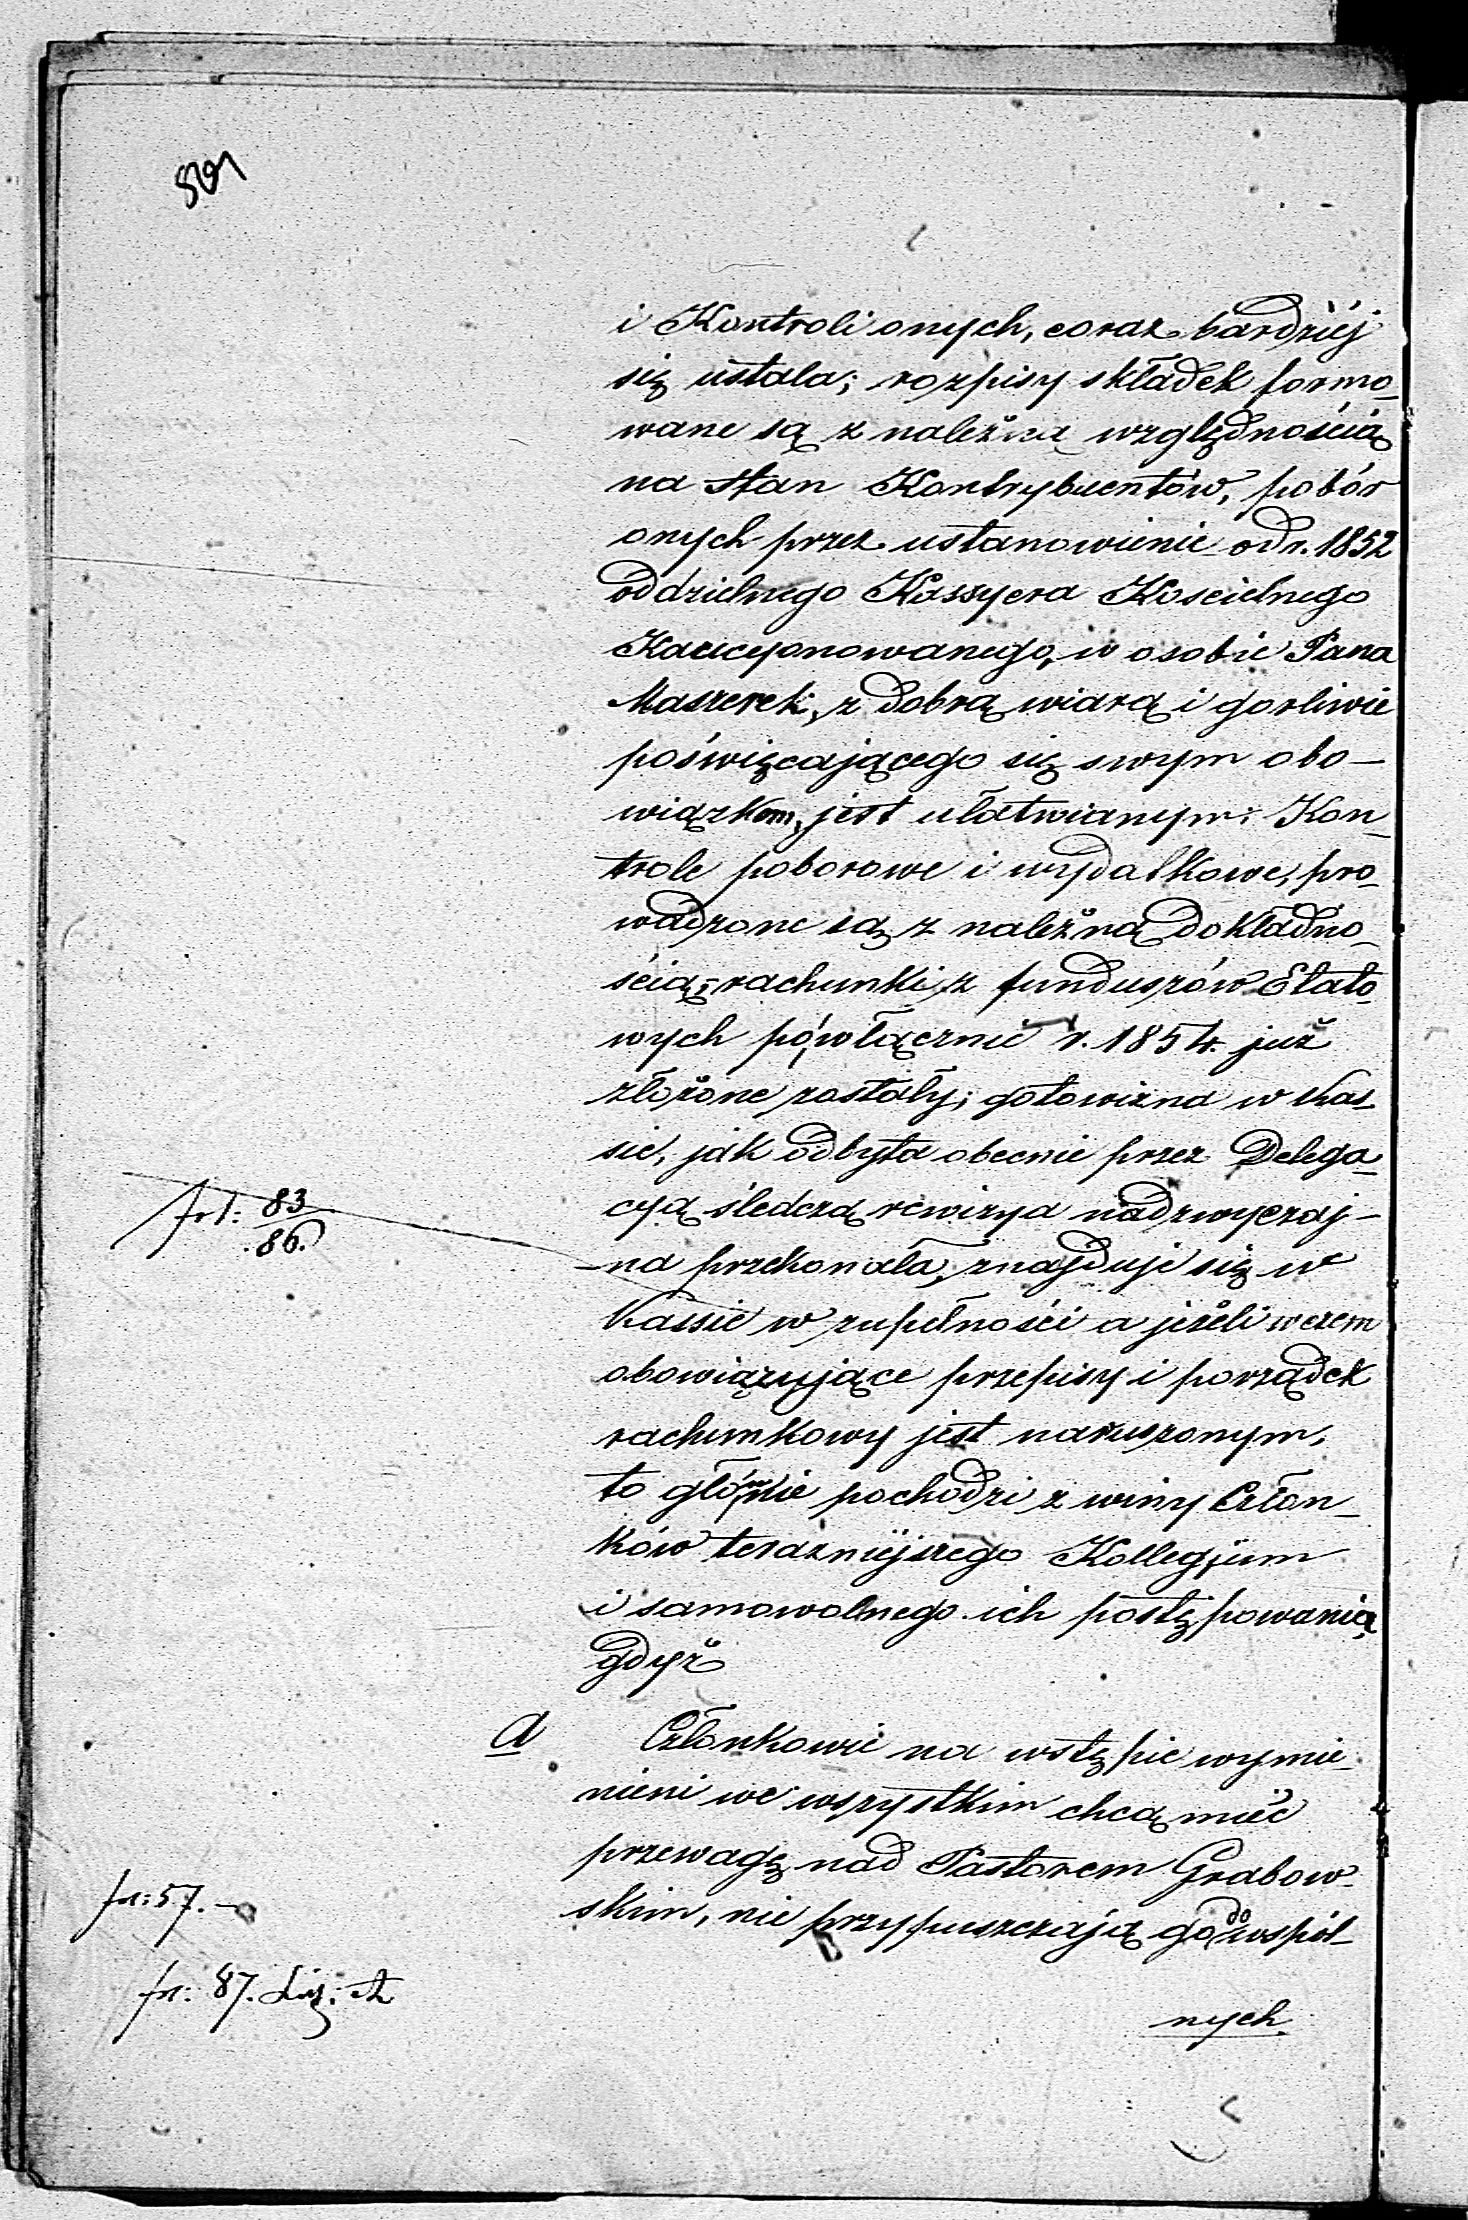 i Kontroli onych, coraz bardziéj
się ustala; rozpisy składek formo-
wane są z należną względnością
na stan Kontrybuentów, pobór
onych przez ustanowienie od r. 1852
oddzielnego Kassyera Koscielnego
Kaucyonowanego, w osobie Pana
Maszerek, z dobrą wiarą i gorliwie
poświęcającego się swym obo-
wiązkom, jest ułatwianym; Kon-
trole poborowe i wydatkowe, pro-
wadzone są z należną dokładno-
ścią; rachunki z funduszów Etato-
wych po włącznie r. 1854. już
złożone zostały; gotowizna w Kas-
sie, jak odbyta obecnie przez Delega-
cyą śledczą rewizya nadzwyczaj-
na przekonała, znajduje się w
Kassie w zupełności a jeżeli w czem
obowiązujące przepisy i porządek
rachunkowy jest naruszonym,
to głównie pochodzi z winy Człon-
ków terazniejszego Kollegjum
i samowolnego ich postępowania,
gdyż
a Członkowie na wstępie wymie-
nieni we wszystkim chcą mieć
przewagę nad Pastorem Grabow-
skim, nie przypuszczają go do wspól-
nych
83
86.
57.
87.